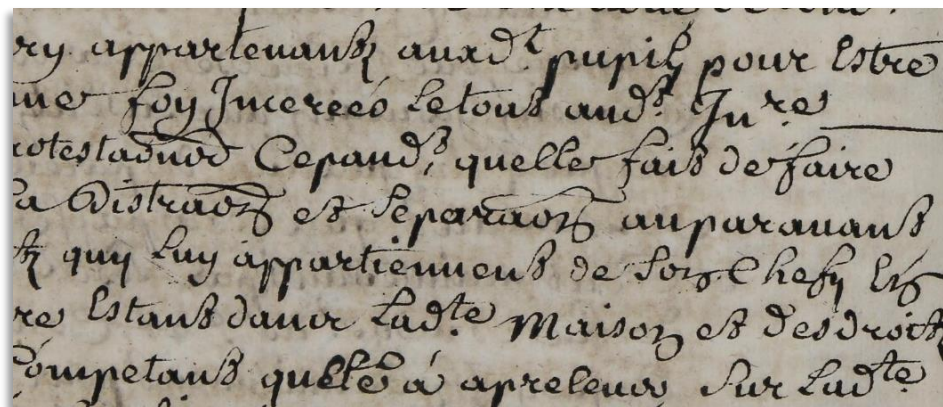 appartenants auxd.t pupils pour Estre
foy Jncerées le tout aud.t Jnre
Cepand.t, quelle fait de faire
la Distraon et separaon auparavant
quy luy appartiennent de son Chefz Et
re Estant dans lad.te Maison et des droits
Competant quelle á a prelever sur lad.te